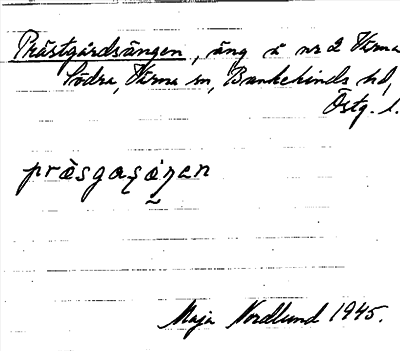 Prästgårdsängen, äng å nr 2 Värna
Södra, Värna sn, Bankekinds hd,
Östg. l.
pràsgaʂàŋen
Maja Nordlund 1945.